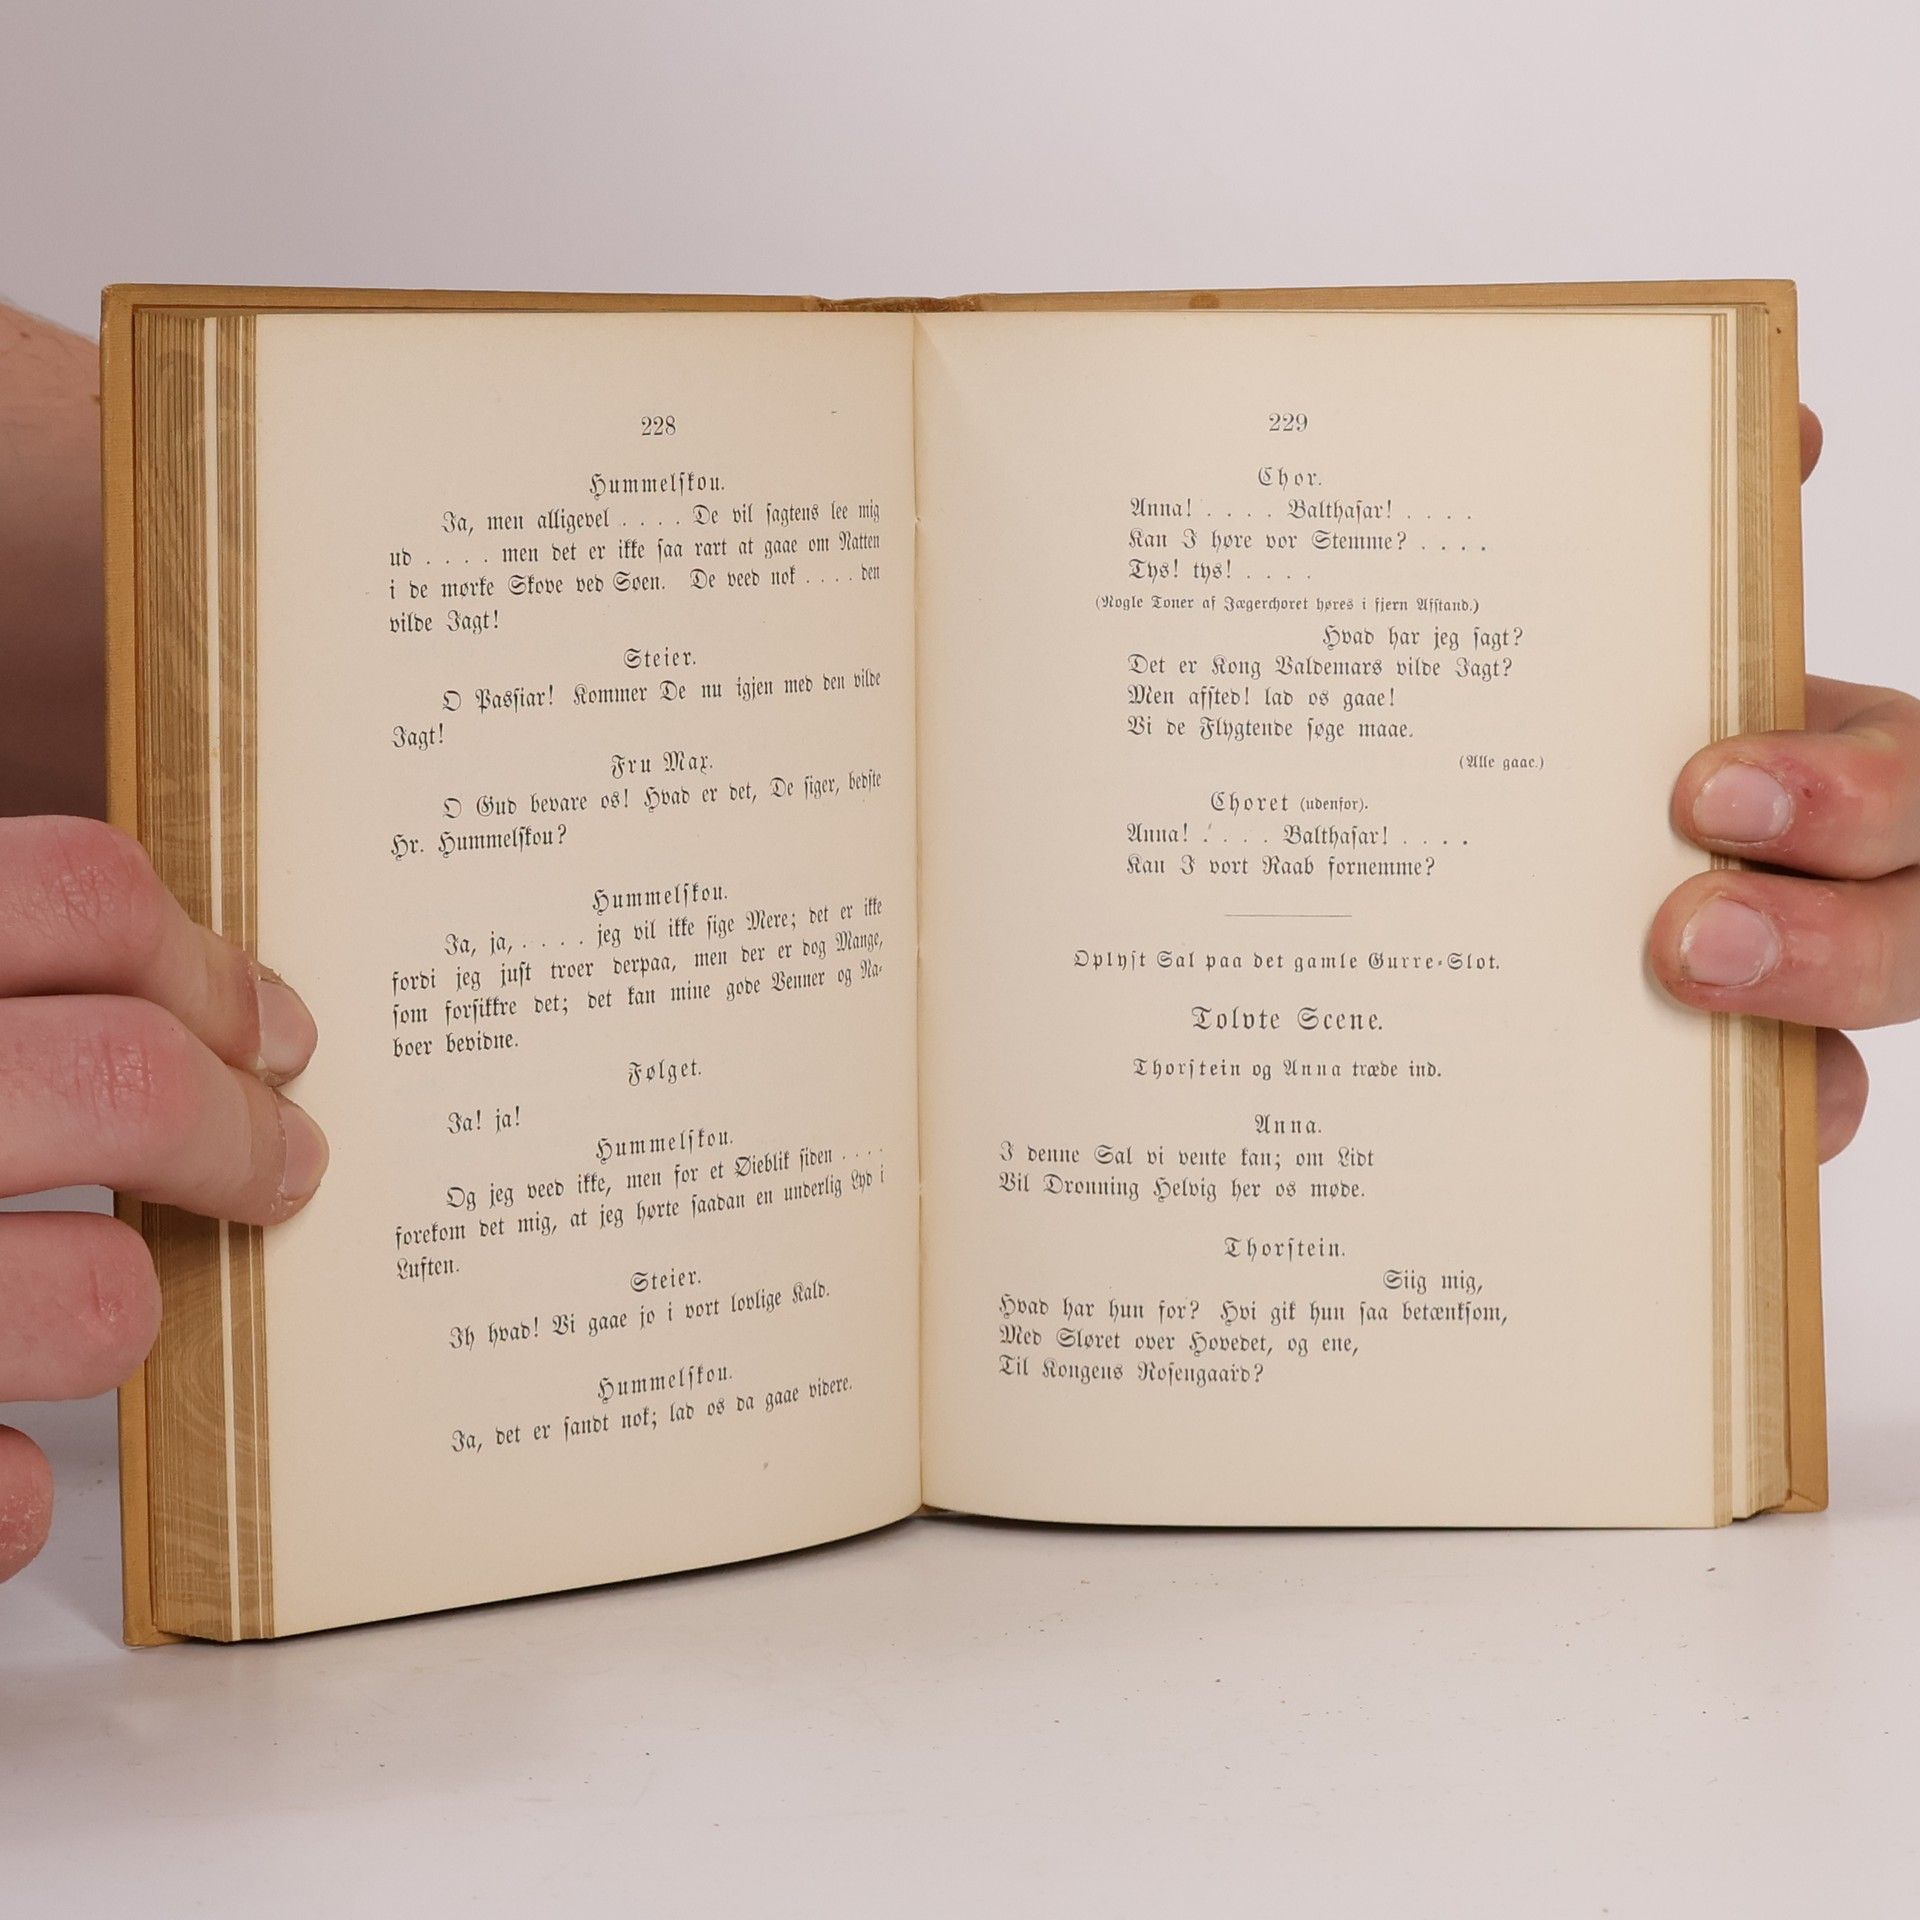 228
Hummelskou.
Ja, men alligevel . . . . De vil sagtens lee mig
ud . . . . men det er ikke saa rart at gaae om Natten
i de mørke Skove ved Søen. De veed nok . . . . den
vilde Jagt!
Steier.
O Passiar! Kommer De nu igjen med den vilde
Jagt!
Fru Max.
O Gud bevare os! Hvad er det, De siger, bedste
Hr. Hummelskou?
Hummelskou.
Ja, ja, . . . . jeg vil ikke sige Mere; det er ikke
fordi jeg just troer derpaa, men der er dog Mange,
som forsikkre det; det kan mine gode Venner og Na-
boer bevidne.
Følget.
Ja! ja!
Hummelskou.
Og jeg veed ikke, men for et Øieblik siden . . . .
forekom det mig, at jeg hørte saadan en underlig Lyd i
Luften.
Steier.
Ih hvad! Vi gaae jo i vort lovlige Kald.
Hummelskou.
Ja, det er sandt nok; lad os da gaae videre.
229
Chor.
Anna! . . . . Balthasar! . . . .
Kan I høre vor Stemme? . . . .
Tys! tys! . . . .
(Nogle Toner af Jægerchoret høres i fjern Afstand.)
Hvad har jeg sagt?
Det er Kong Valdemars vilde Jagt?
Men afsted! lad os gaae!
Vi de Flygtende søge maae.
(Alle gaae.)
Choret (udenfor).
Anna! . . . . Balthasar! . . . .
Kan I vort Raab fornemme?
Oplyst Sal paa det gamle Gurre-Slot.
Tolvte Scene.
Thorstein og Anna træde ind.
Anna.
I denne Sal vi vente kan; om Lidt
Vil Dronning Helvig her os møde.
Thorstein.
Siig mig,
Hvad har hun for? Hvi gik hun saa betænksom,
Med Sløret over Hovedet, og ene,
Til Kongens Rosengaard?